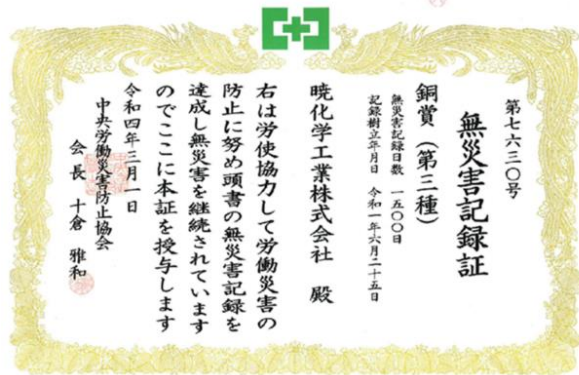 第七六三〇号
無災害記録証
銅賞（第三種）
無災害記録日数 一五〇〇日
記録樹立年月日 令和一年六月二十五日
暁化学工業株式会社 殿
右は労使協力して労働災害の
防止に努め頭書の無災害記録を
達成し無災害を継続されています
のでここに本証を授与します
令和四年三月一日
中央労働災害防止協会
会長 十倉 雅和